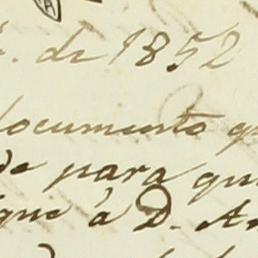 de 1852
documento q
de para qu
que á D. An